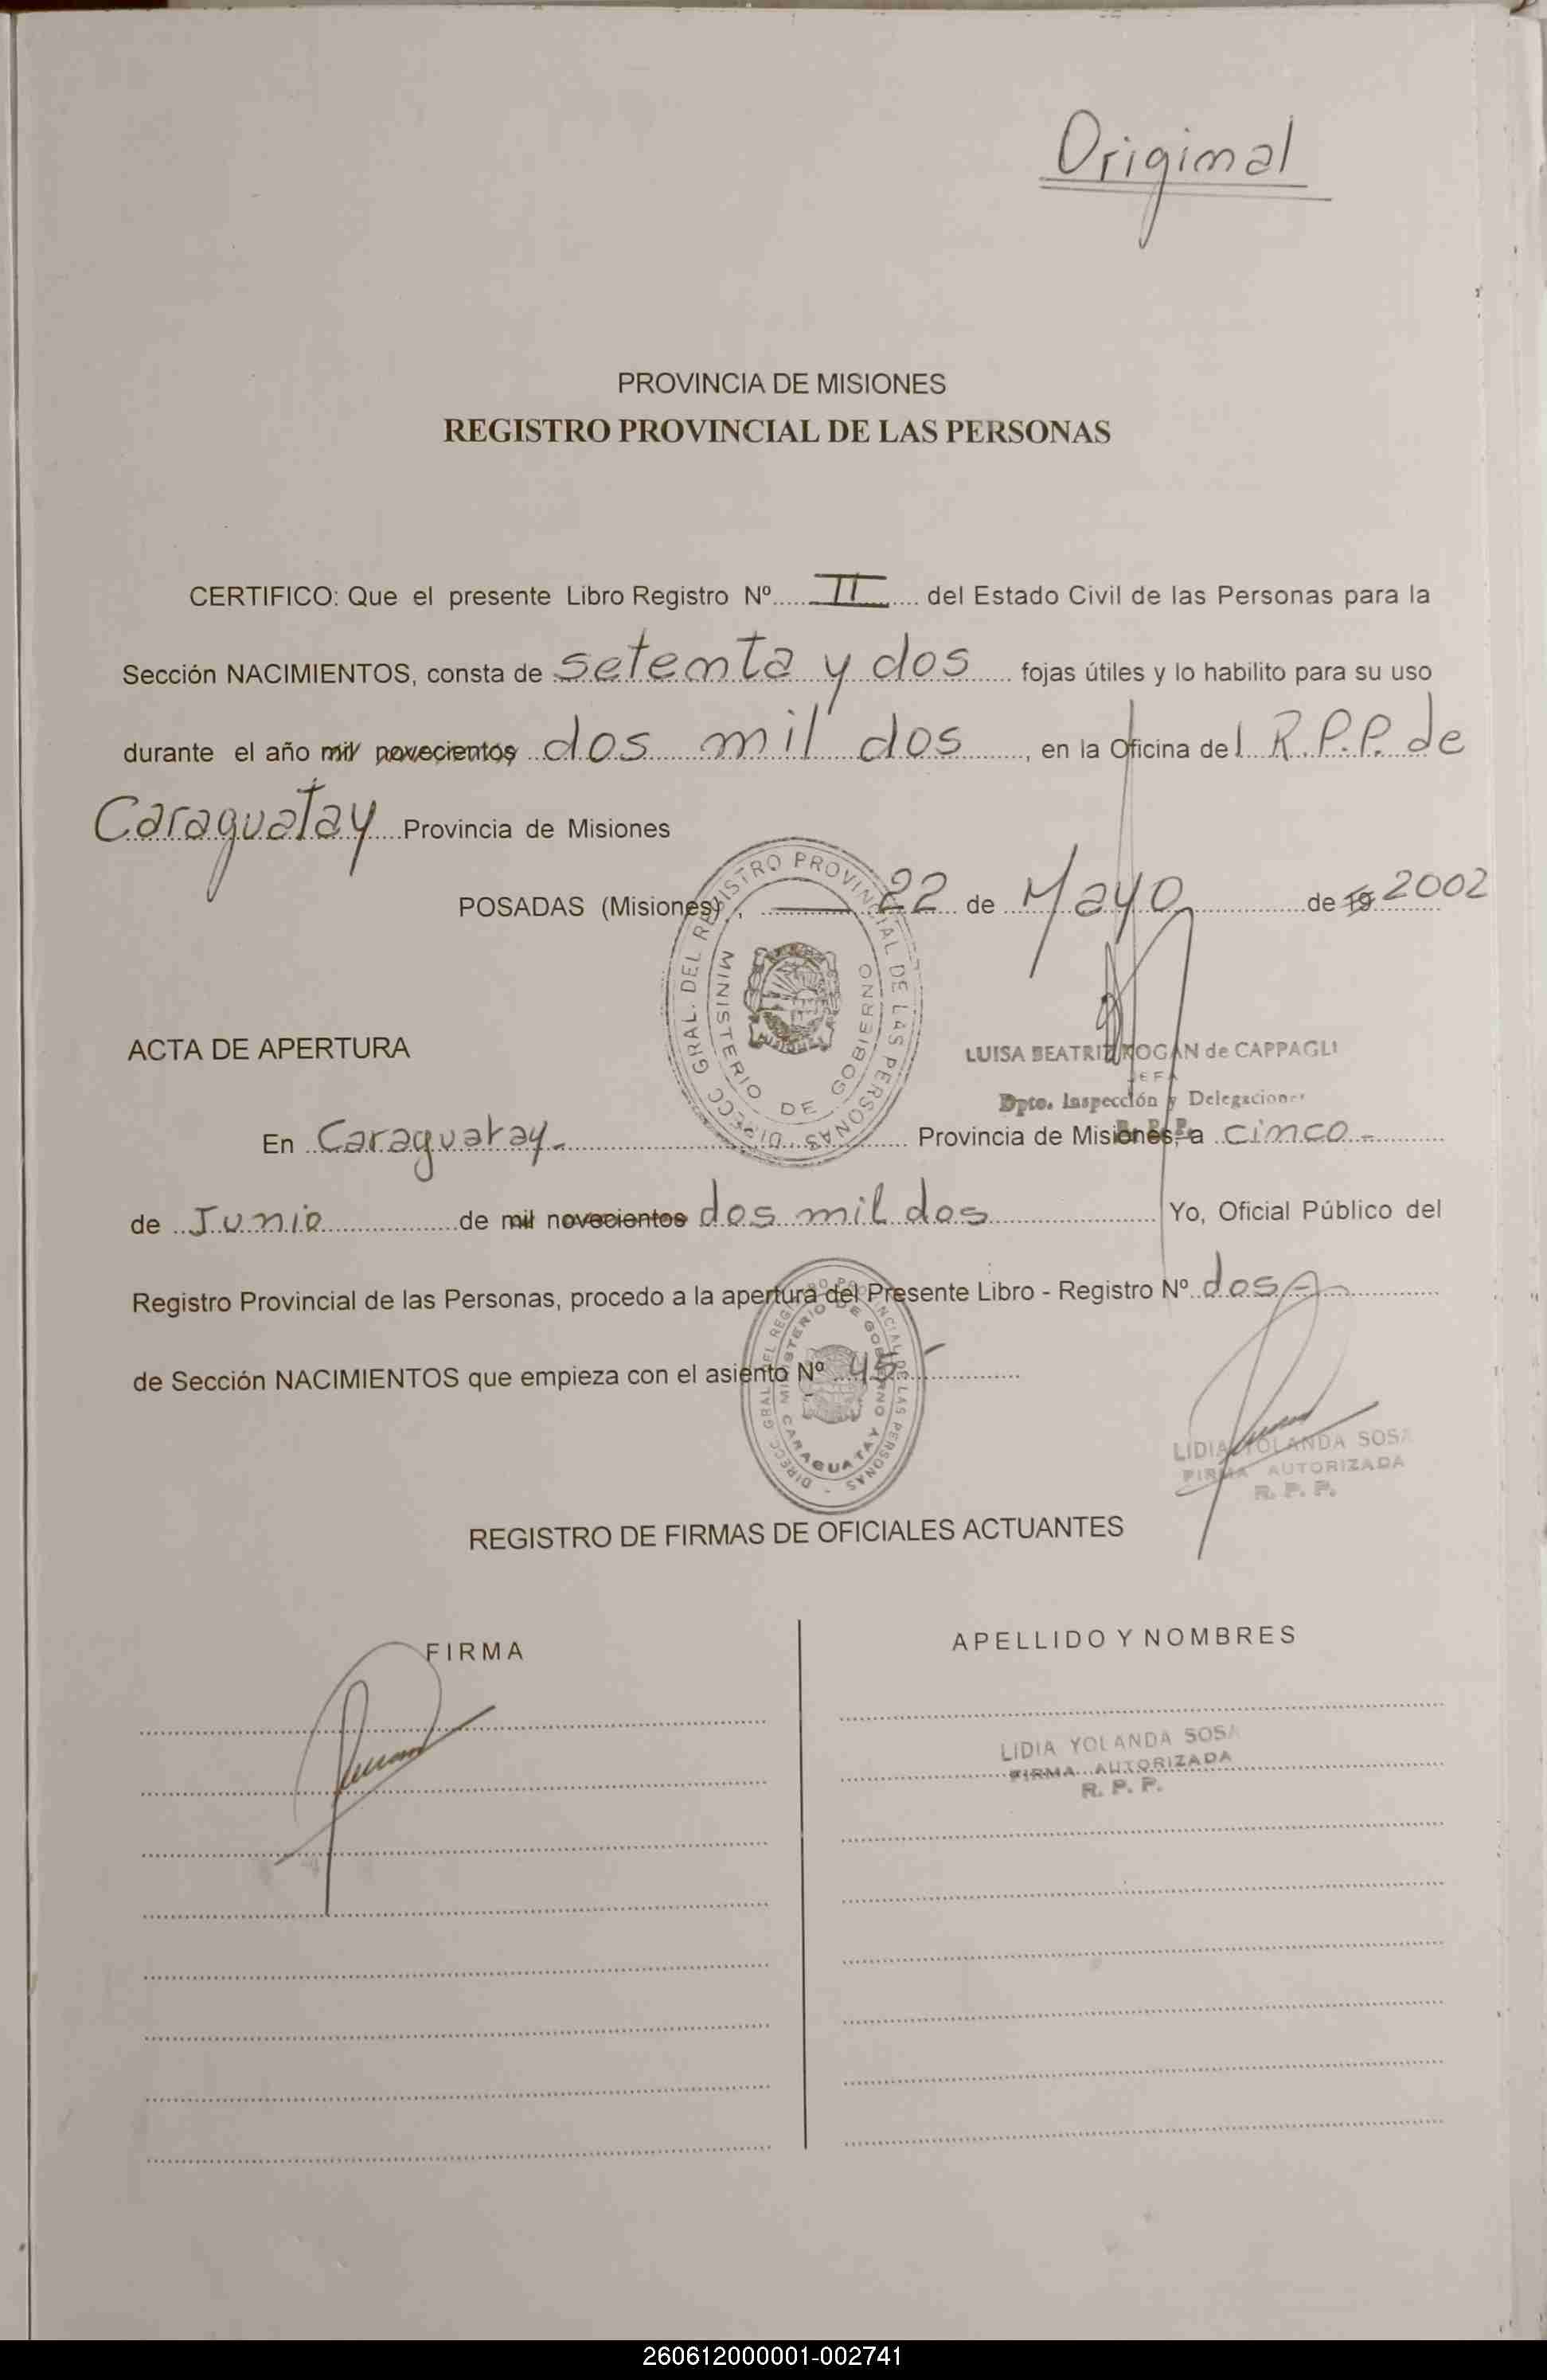 Original
PROVINCIA DE MISIONES
REGISTRO PROVINCIAL DE LAS PERSONAS
CERTIFICO: Que el presente Libro Registro Nº II del Estado Civil de las Personas para la
Sección NACIMIENTOS, consta de setenta y dos fojas útiles y lo habilito para su uso
durante el año mil novecientos dos mil dos, en la Oficina del R.P.P. de
Caraguatay Provincia de Misiones
POSADAS (Misiones), 22 de Mayo de 19 2002
DIRECC. GRAL. DEL REGISTRO PROVINCIAL DE LAS PERSONAS
MINISTERIO DE GOBIERNO
MISIONES
LUISA BEATRIZ KOGAN de CAPPAGLI
JEFA
Dpto. Inspección y Delegaciones
R. P. P.
ACTA DE APERTURA
En Caraguatay.- Provincia de Misiones, a cinco.-
de Junio de mil novecientos dos mil dos Yo, Oficial Público del
Registro Provincial de las Personas, procedo a la apertura del Presente Libro - Registro Nº dos.-
de Sección NACIMIENTOS que empieza con el asiento Nº 45.-
DIRECC. GRAL. DEL REGISTRO PROVINCIAL DE LAS PERSONAS
MINISTERIO DE GOBIERNO
CARAGUATAY
LIDIA YOLANDA SOSA
FIRMA AUTORIZADA
R. P. P.
REGISTRO DE FIRMAS DE OFICIALES ACTUANTES
FIRMA
APELLIDO Y NOMBRES
LIDIA YOLANDA SOSA
FIRMA AUTORIZADA
R. P. P.
260612000001-002741